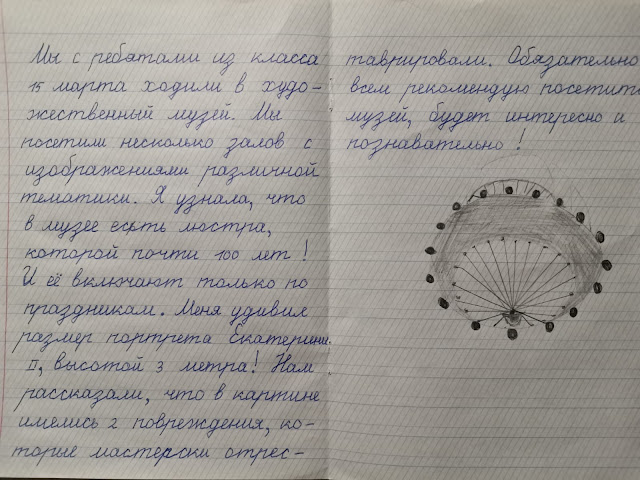 Мы с ребятами из класса
15 марта ходили в худо-
жественный музей. Мы
посетили несколько залов с
изображениями различной
тематики. Я узнала, что
в музее есьть люстра,
которой почти 100 лет!
И её включают только по
праздникам. Меня удивил
размер портрета Екатерины
II, высотой 3 метра! Нам
рассказали, что в картине
имелись 2 повреждения, ко-
торые мастерски отрес-
таврировали. Обязательно
всем рекомендую посетить
музей, будет интересно и
познавательно!